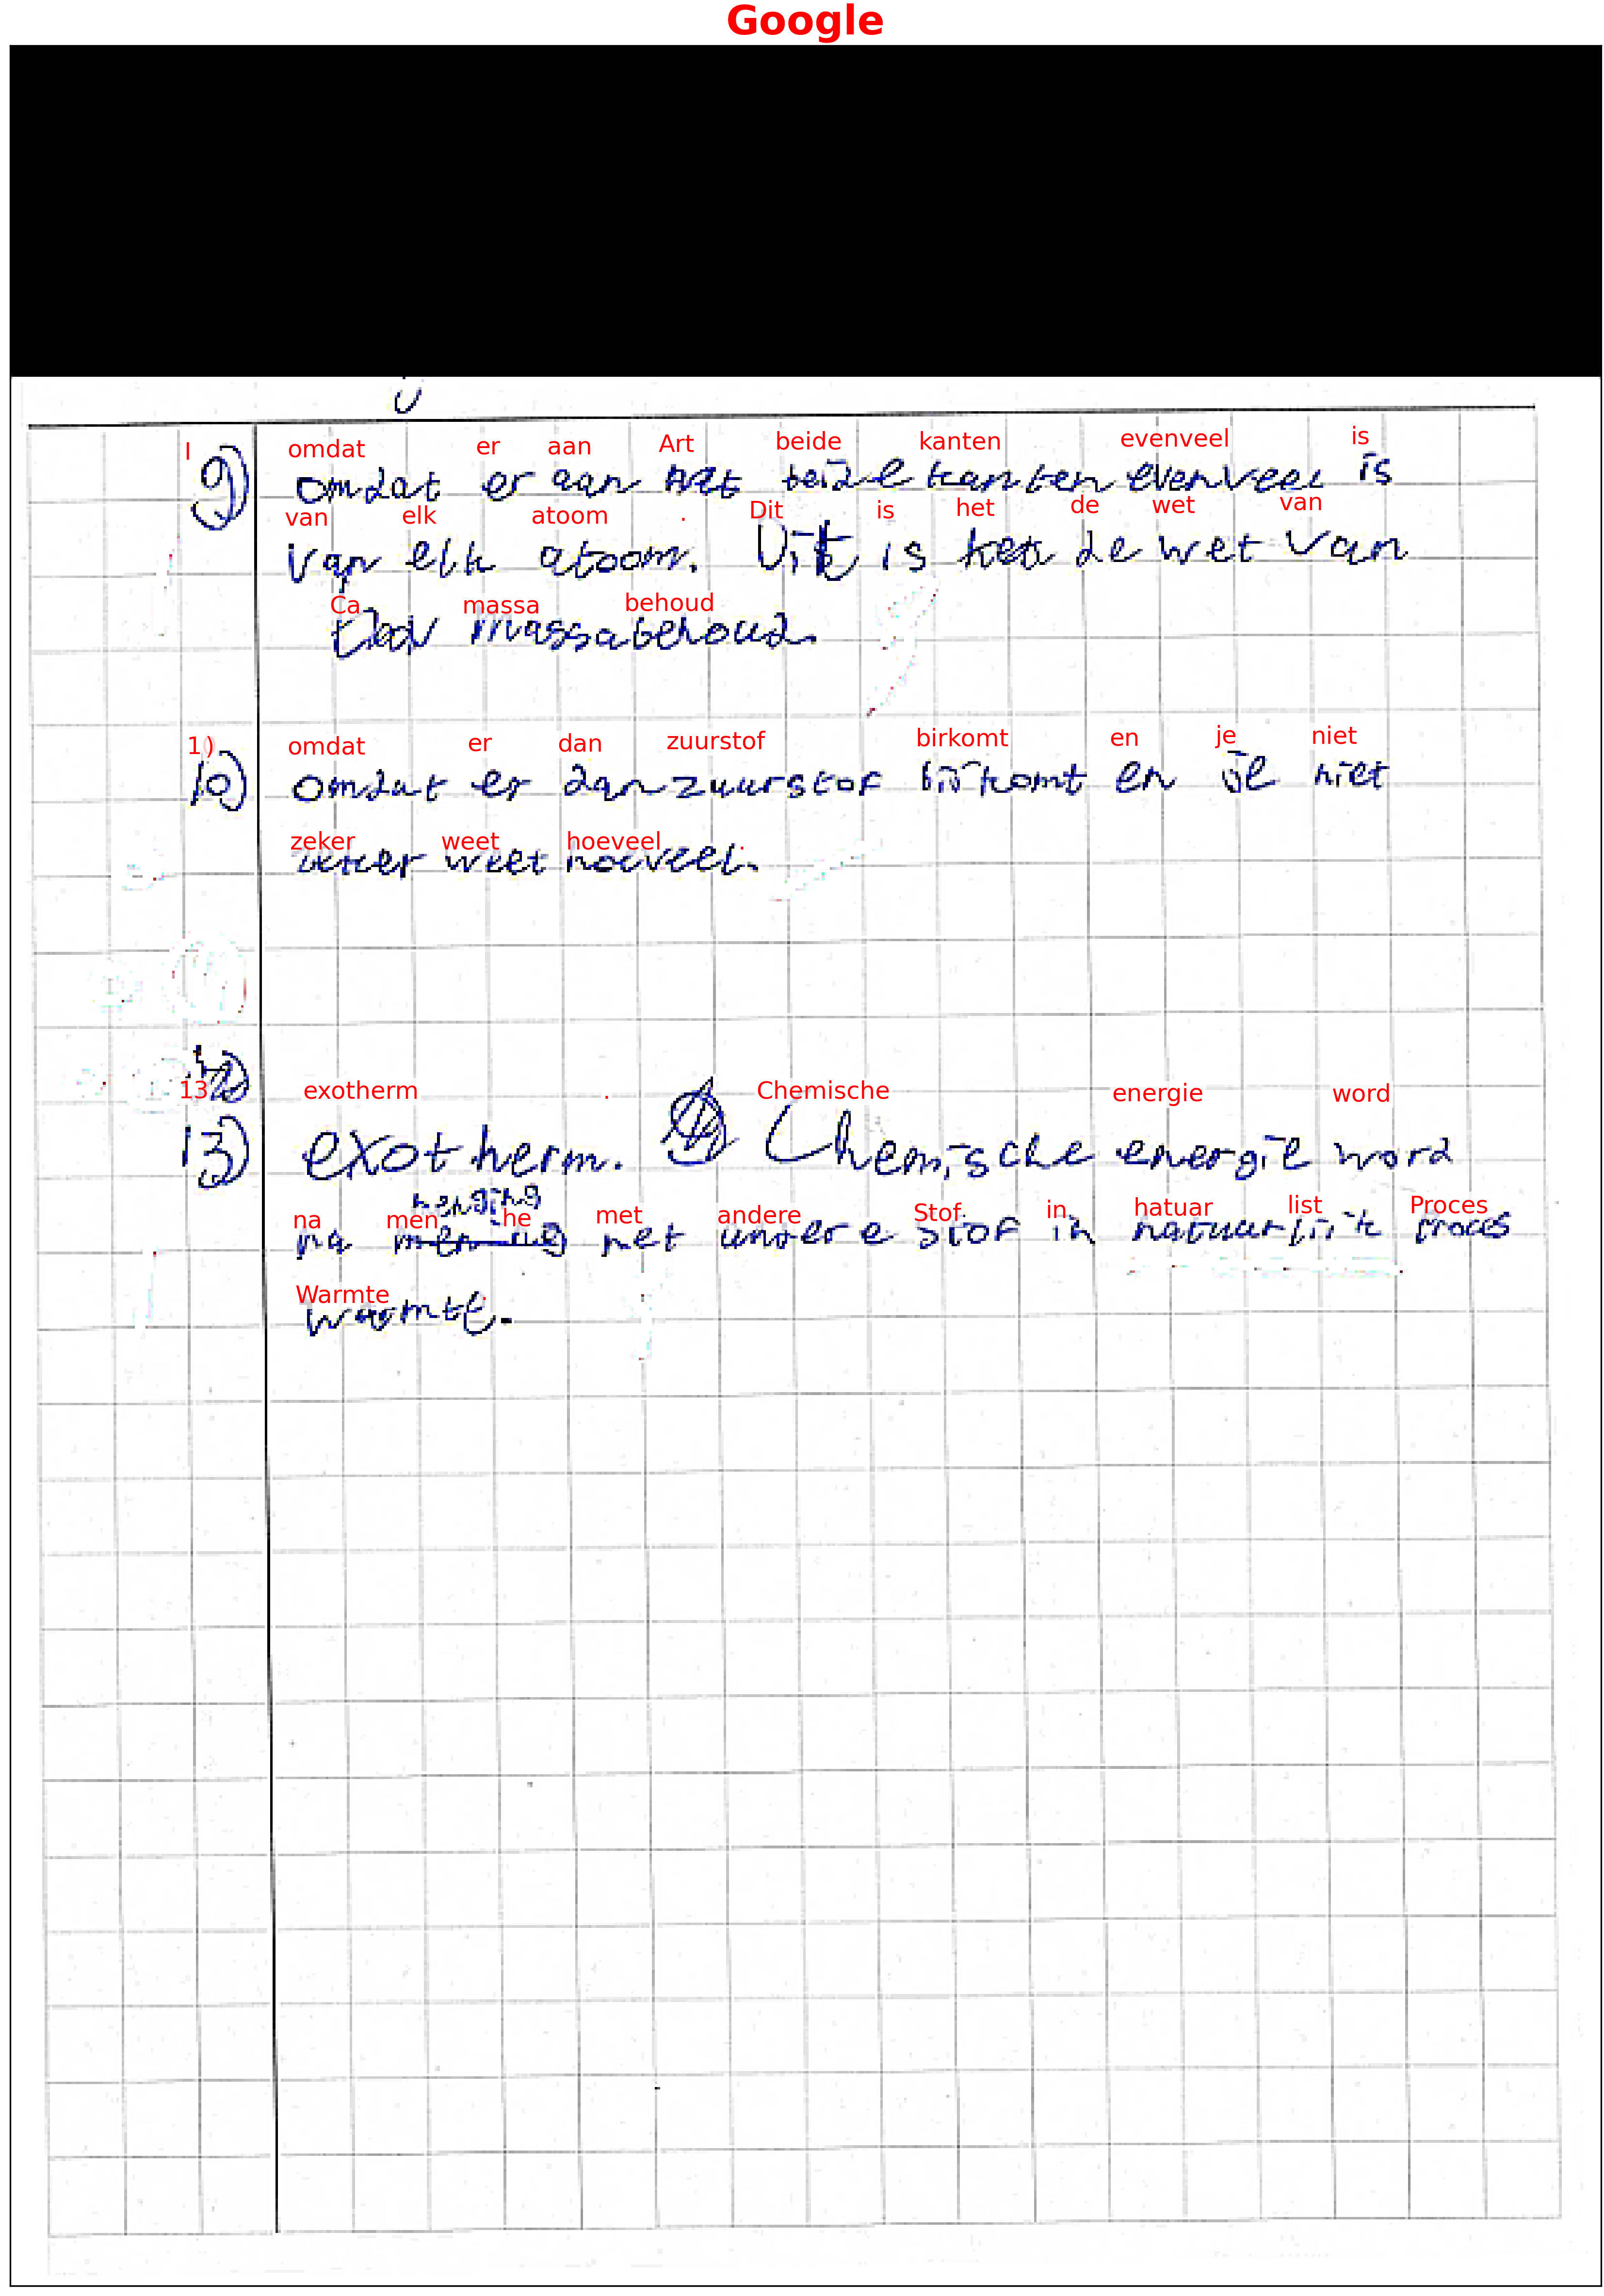 Google
I omdat er aan Art beide kanten evenveel is
9) omdat er aan beide kanten evenveel is
van elk atoom . Dit is het de wet van
van elk atoom. Dit is de wet van
Ca massa behoud
massabehoud.
1) omdat er dan zuurstof birkomt en je niet
10) omdat er dan zuurstof bijkomt en je niet
zeker weet hoeveel .
zeker weet hoeveel.
13 exotherm . Chemische energie word
13) exotherm. Chemische energie word
menging
na men he met andere Stof. in hatuar list Proces
na met andere stof in natuurlijk proces
Warmte
warmte.